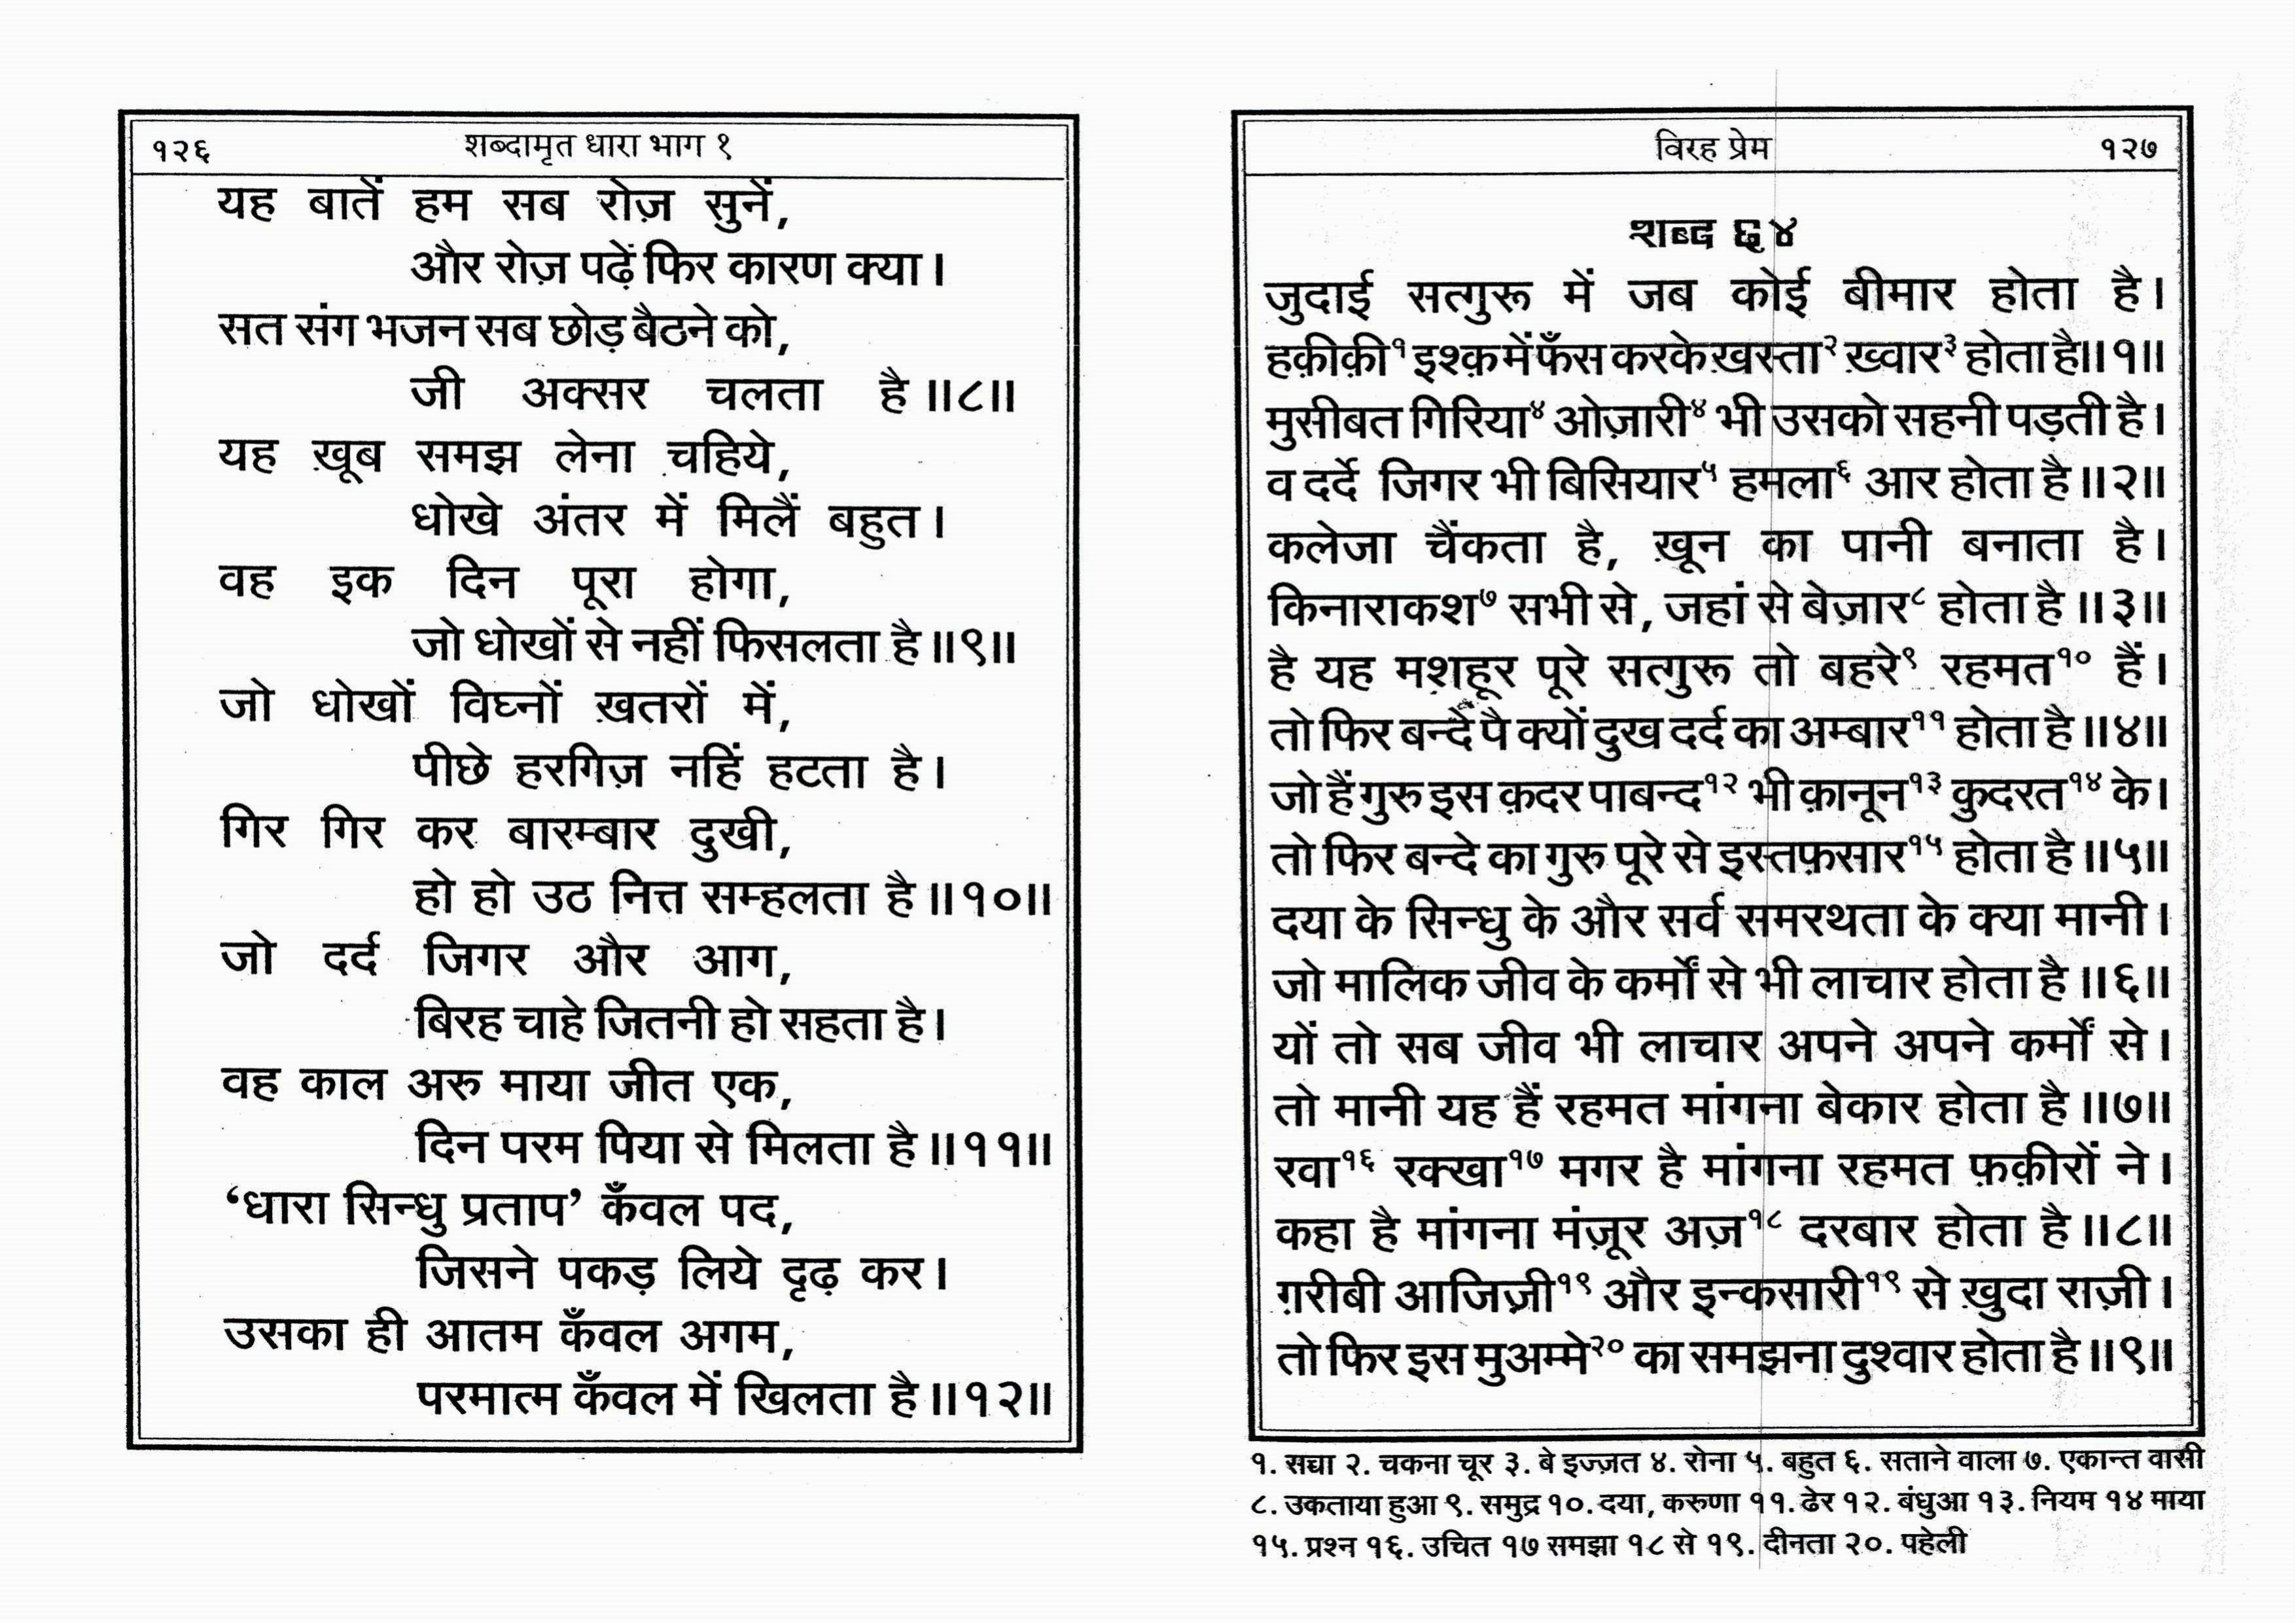 १२६ शब्दामृत धारा भाग १
यह बातें हम सब रोज़ सुनें,
और रोज़ पढ़ें फिर कारण क्या।
सत संग भजन सब छोड़ बैठने को,
जी अक्सर चलता है॥८॥
यह ख़ूब समझ लेना चहिये,
धोखे अंतर में मिलैं बहुत।
वह इक दिन पूरा होगा,
जो धोखों से नहीं फिसलता है॥९॥
जो धोखों विघ्नों ख़तरों में,
पीछे हरगिज़ नहिं हटता है।
गिर गिर कर बारम्बार दुखी,
हो हो उठ नित्त सम्हलता है॥१०॥
जो दर्द जिगर और आग,
बिरह चाहे जितनी हो सहता है।
वह काल अरु माया जीत एक,
दिन परम पिया से मिलता है॥११॥
‘धारा सिन्धु प्रताप’ कँवल पद,
जिसने पकड़ लिये दृढ़ कर।
उसका ही आतम कँवल अगम,
परमात्म कँवल में खिलता है॥१२॥
विरह प्रेम १२७
शब्द ६४
जुदाई सत्गुरू में जब कोई बीमार होता है।
हक़ीक़ी१ इश्क़ में फँस करके ख़स्ता२ ख़्वार३ होता है॥१॥
मुसीबत गिरिया४ ओज़ारी४ भी उसको सहनी पड़ती है।
व दर्दे जिगर भी बिसियार५ हमला६ आर होता है॥२॥
कलेजा चैंकता है, ख़ून का पानी बनाता है।
किनाराकश७ सभी से, जहां से बेज़ार८ होता है॥३॥
है यह मशहूर पूरे सत्गुरू तो बहरे९ रहमत१० हैं।
तो फिर बन्दे पै क्यों दुख दर्द का अम्बार११ होता है॥४॥
जो हैं गुरु इस क़दर पाबन्द१२ भी क़ानून१३ क़ुदरत१४ के।
तो फिर बन्दे का गुरु पूरे से इस्तफ़सार१५ होता है॥५॥
दया के सिन्धु के और सर्व समरथता के क्या मानी।
जो मालिक जीव के कर्मों से भी लाचार होता है॥६॥
यों तो सब जीव भी लाचार अपने अपने कर्मों से।
तो मानी यह हैं रहमत मांगना बेकार होता है॥७॥
रवा१६ रक्खा१७ मगर है मांगना रहमत फ़क़ीरों ने।
कहा है मांगना मंज़ूर अज़१८ दरबार होता है॥८॥
ग़रीबी आजिज़ी१९ और इन्कसारी१९ से ख़ुदा राज़ी।
तो फिर इस मुअम्मे२० का समझना दुश्वार होता है॥९॥
१. सच्चा २. चकना चूर ३. बे इज्ज़त ४. रोना ५. बहुत ६. सताने वाला ७. एकान्त वासी
८. उकताया हुआ ९. समुद्र १०. दया, करुणा ११. ढेर १२. बंधुआ १३. नियम १४ माया
१५. प्रश्न १६. उचित १७ समझा १८ से १९. दीनता २०. पहेली